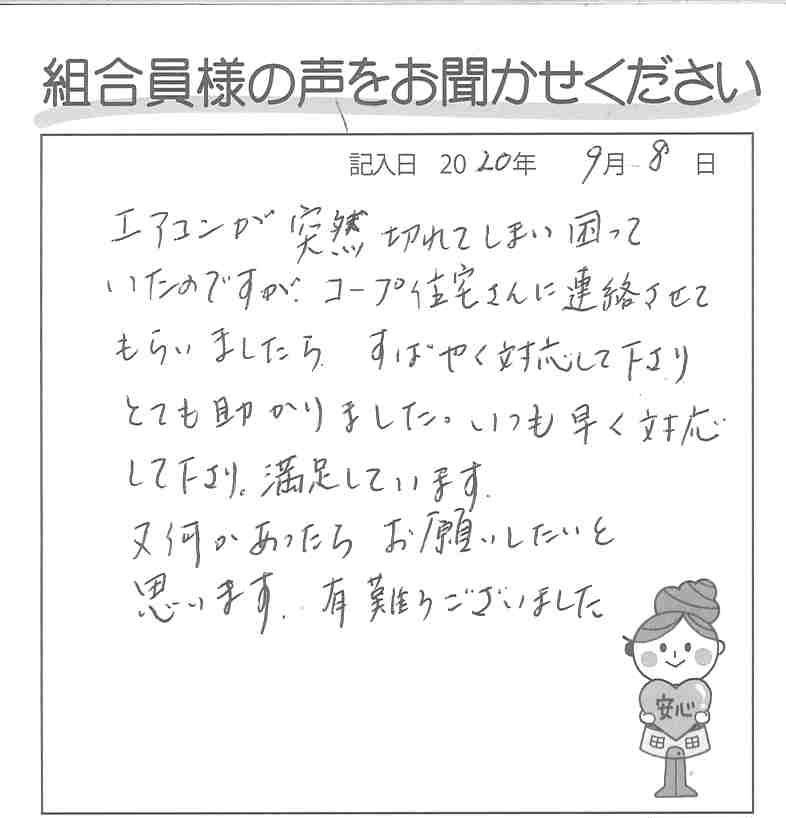 組合員様の声をお聞かせください
記入日 2020年 9月 8日
エアコンが突然切れてしまい困って
いたのですが、コープ住宅さんに連絡させて
もらいましたら、すばやく対応して下さり
とても助かりました。いつも早く対応
して下さり、満足しています。
又何かあったらお願いしたいと
思います。有難うございました
安心